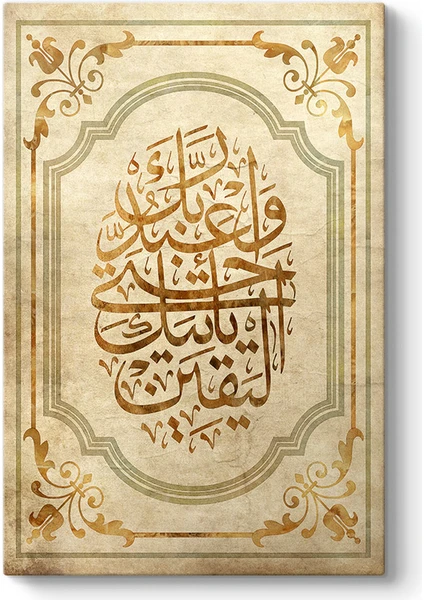 وَاعْبُدْ رَبَّكَ
حَتَّىٰ
يَأْتِيَكَ
الْيَقِينُ